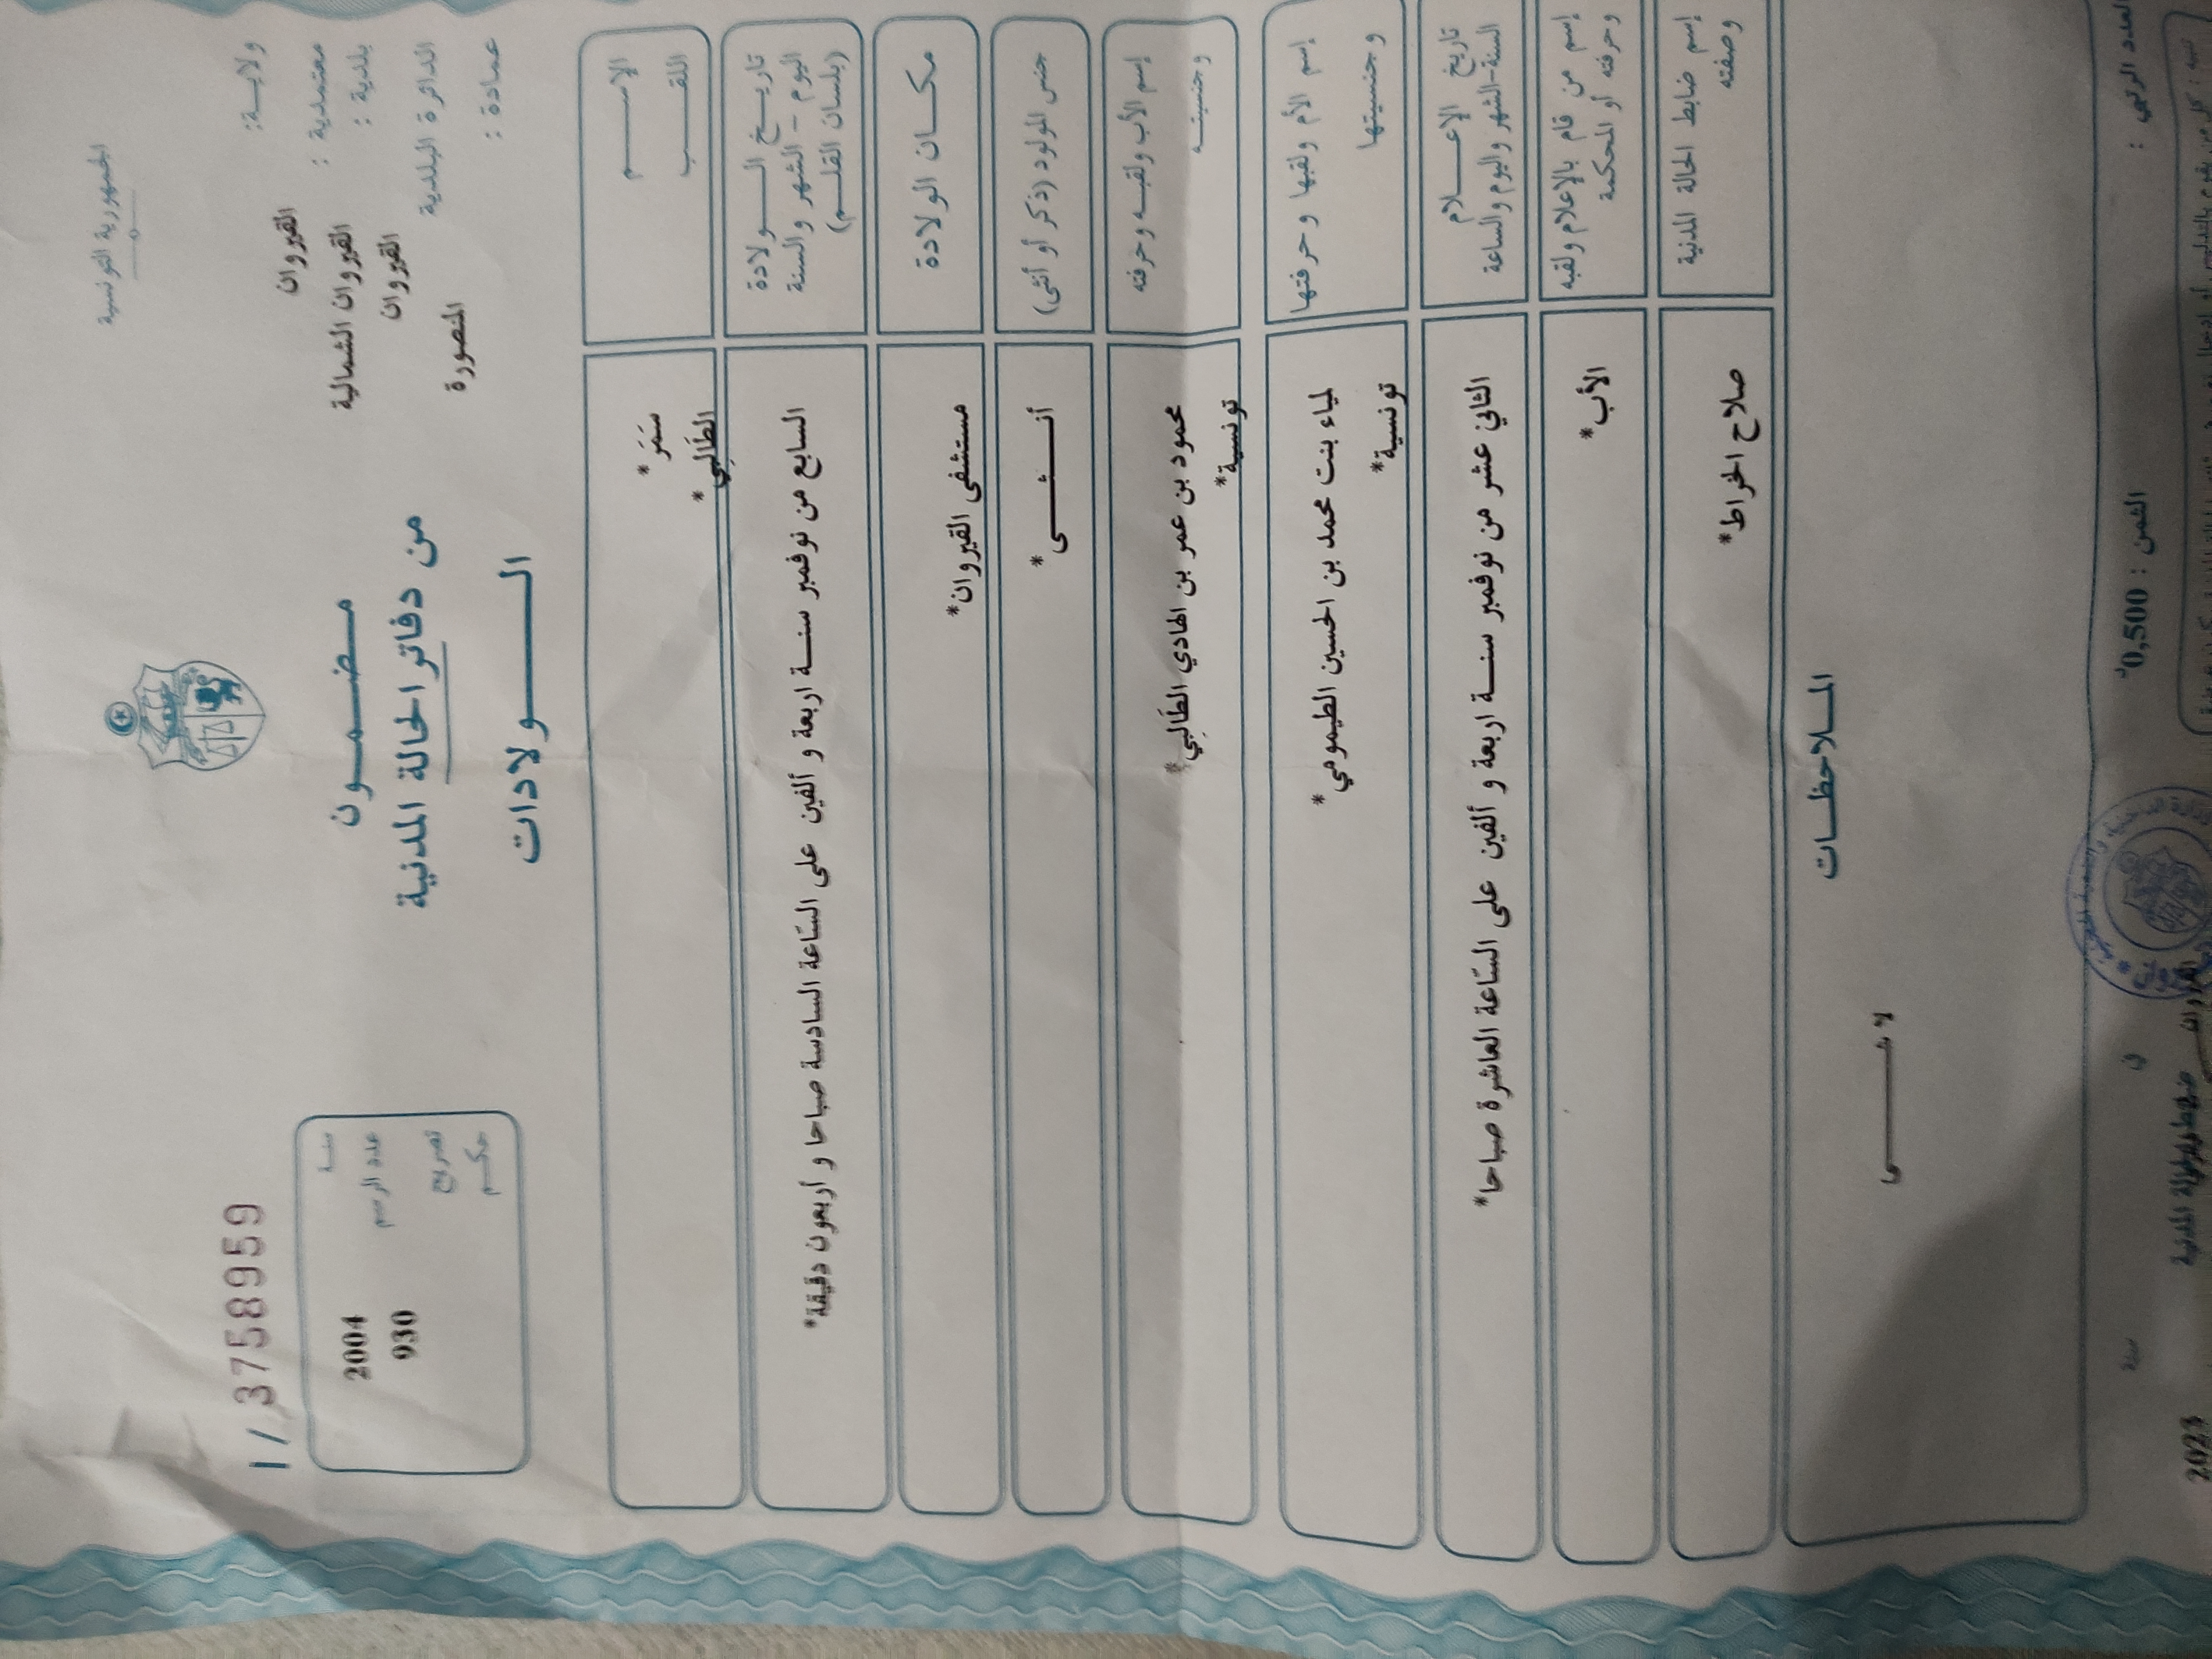 الجمهورية التونسية
ولايـــة: القيروان
معتمدية : القيروان الشمالية
بلدية : القيروان
الدائرة البلدية المنصورة
عمادة :
مـضـمـــون
من دفاتر الحالة المدنية
الـــــولادات
I / 3758959
سنــة 2004
عدد الرسم 930
تصريح
حكــم
الإســـــم سَمَر*
اللقـــــب الطَالبِي*
تاريــخ الـــــولادة
اليوم - الشهر والسنة
(بلسان القلــم)
السابع من نوفمبر سنــة اربعة و ألفين على السّاعة السادسة صباحا و أربعون دقيقة*
مكـــان الولادة مستشفى القيروان*
جنس المولود (ذكر أو أنثى) أنـــثـــى*
إسم الأب ولقبــه وحرفته محمود بن عمر بن الهادي الطَالبِي*
وجنسيتــــه تونسية*
إسم الأم ولقبها وحرفتها لمياء بنت محمد بن الحسين الطيمومي*
وجنسيتها تونسية*
تاريخ الإعـــلام
السنة-الشهر واليوم والساعة
الثاني عشر من نوفمبر سنــة اربعة و ألفين على السّاعة العاشرة صباحا*
إسم من قام بالإعلام ولقبه
وحرفته أو المحكمة
الأب*
إسم ضابط الحالة المدنية
وصفته
صلاح الخراط*
المــلاحظــات
لا شـــــــى
العدد الرتبي :
الثمن : 0,500د
في
سنة 2023